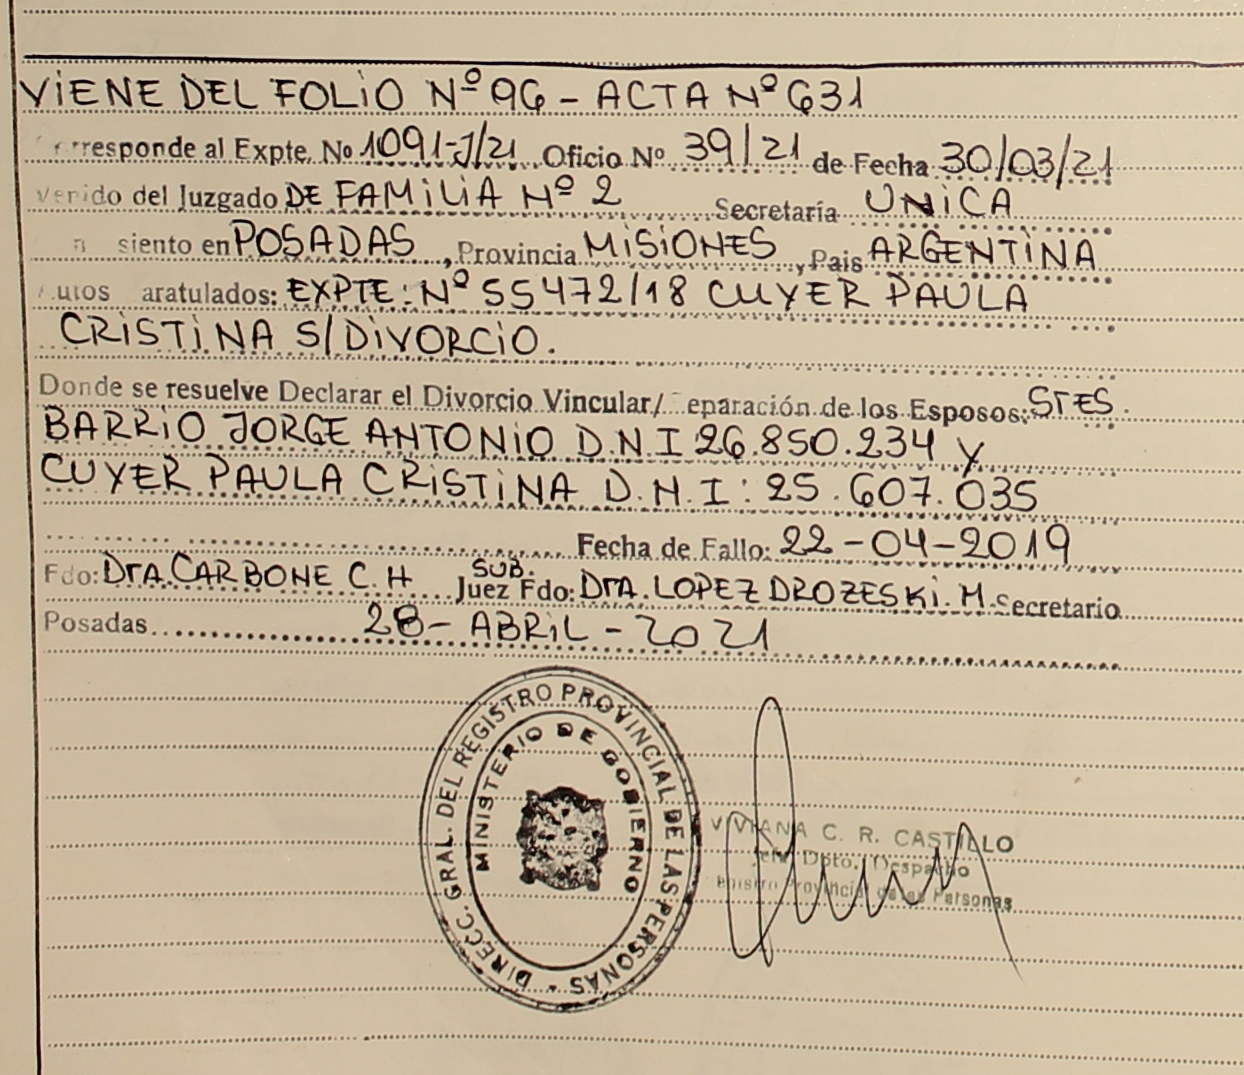 VIENE DEL FOLIO Nº 96 - ACTA Nº 631
rresponde al Expte. No 1091-J/21 Oficio No 39/21 de Fecha 30/03/21
venido del Juzgado DE FAMILIA Nº 2 Secretaría UNICA
siento en POSADAS, Provincia MISIONES, Pais ARGENTINA
utos aratulados: EXPTE: Nº 55472/18 CUYER PAULA
CRISTINA S/DIVORCIO.
Donde se resuelve Declarar el Divorcio Vincular/ eparación de los Esposos: STES.
BARRIO JORGE ANTONIO D.N.I 26.850.234 y
CUYER PAULA CRISTINA D.N.I: 25.607.035
Fecha de Fallo: 22-04-2019
Fdo: Dra. CARBONE C.H SUB. Juez Fdo: Dra. LOPEZ DROZESKI. M. Secretario
Posadas 28-ABRIL-2021
DIRECC. GRAL. DEL REGISTRO PROVINCIAL DE LAS PERSONAS
MINISTERIO DE GOBIERNO
VIVIANA C. R. CASTILLO
Dpto. Despacho
Provincial de las Personas